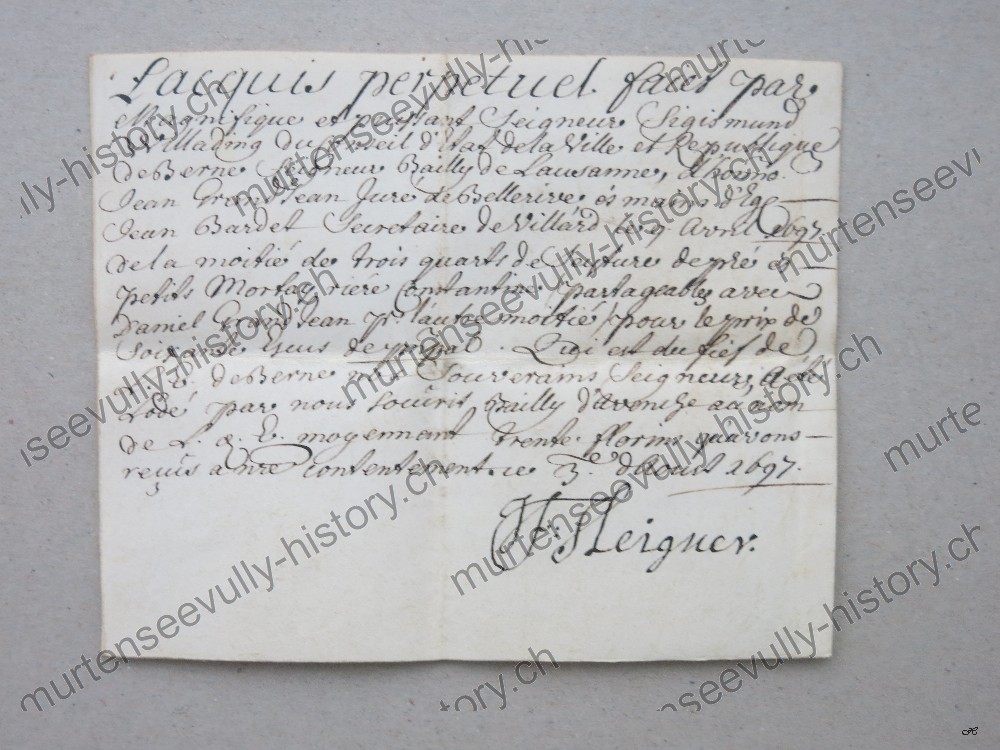 Lacquis perpetuel faict par
Magnifique et puissant Seigneur Sigismund
de Willading du Conseil d'Etat de la Ville et Republique
de Berne Seigneur Bailly de Lausanne, d'hono.
Jean Grand Jean Juré de Bellerive és mains d'Eg
Jean Bardet Secretaire de Villard le 7 Avril 1697.
de la moitié de trois quarts de Seyture de pré
petits Mortay riére Constantine partageables avec
Daniel Grand Jean pr. l'autre moitié pour le prix de
Soixante Escus de ppal. Qui est du fief de
L. E. de Berne nos Souverains Seigneurs, A été
Lodé par nous soucrit Bailly d'avenche au nom
de L. a. E. moyennant trente florins que avons
reçus a nre contentement. ce 3e d'Aout 1697.
Steigner.
murtenseevully-history.ch